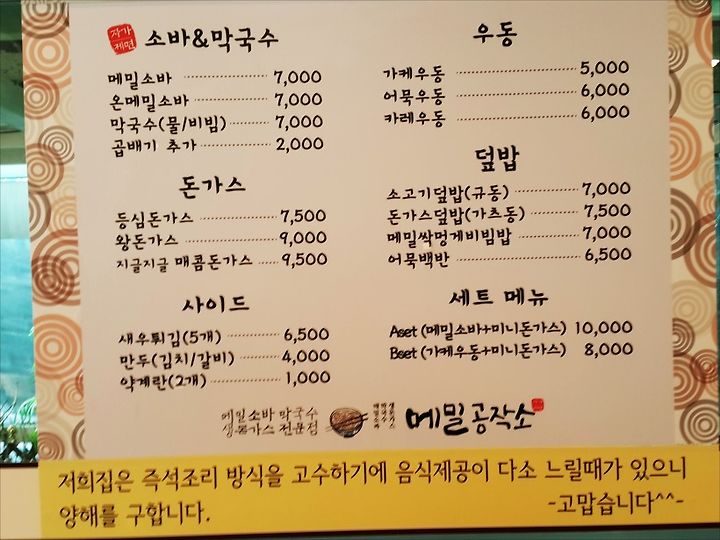 자가
제면
소바&막국수
메밀소바 7,000
온메밀소바 7,000
막국수(물/비빔) 7,000
곱배기 추가 2,000
돈가스
등심돈가스 7,500
왕돈가스 9,000
지글지글 매콤돈가스 9,500
사이드
새우튀김(5개) 6,500
만두(김치/갈비) 4,000
약계란(2개) 1,000
우동
가케우동 5,000
어묵우동 6,000
카레우동 6,000
덮밥
소고기덮밥(규동) 7,000
돈가스덮밥(가츠동) 7,500
메밀싹멍게비빔밥 7,000
어묵백반 6,500
세트 메뉴
Aset (메밀소바+미니돈가스) 10,000
Bset (가케우동+미니돈가스) 8,000
메밀소바 막국수
생돈가스 전문점
메밀공작소
저희집은 즉석조리 방식을 고수하기에 음식제공이 다소 느릴때가 있으니
양해를 구합니다. -고맙습니다^^-